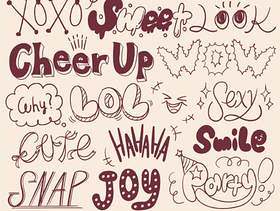 XOXO Sweet LOOK
Cheer Up WOW
Why? LOL Sexy
CUTE HAHAHA Smile
SNAP JOY Party!